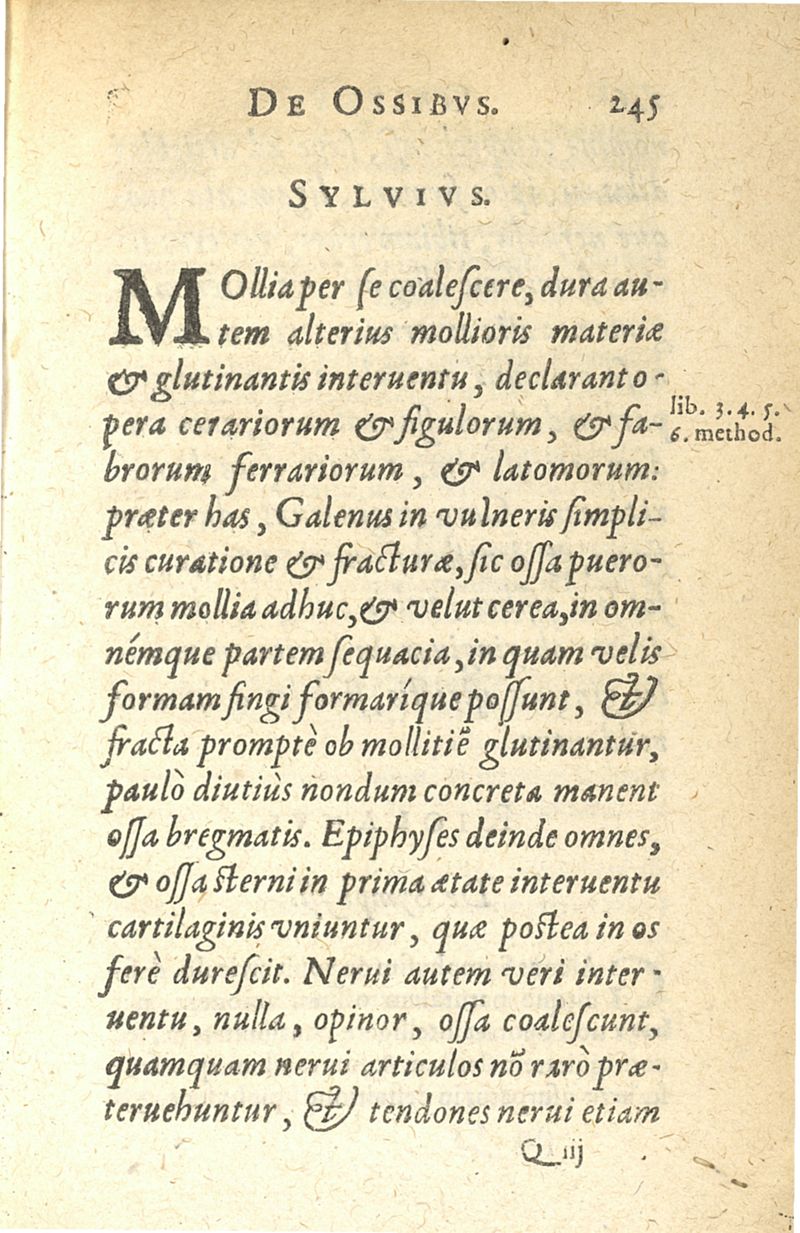 DE OSSIBVS. 245
SYLVIVS.
MOllia per ſe coaleſcere, dura au-
tem alterius mollioris materiæ
& glutinantis interuentu, declarant o-
pera cerariorum & figulorum, & fa-
lib. 3. 4. 5.
6. method.
brorum ferrariorum, & latomorum:
præter has, Galenus in vulneris ſimpli-
cis curatione & fracturæ, ſic oſſa puero-
rum mollia adhuc, & velut cerea, in om-
némque partem ſequacia, in quam velis
formam fingi formaríque poſſunt, &
fracta promptè ob mollitiē glutinantur,
paulò diutiùs nondum concreta manent
oſſa bregmatis. Epiphyſes deinde omnes,
& oſſa ſterni in prima ætate interuentu
cartilaginis vniuntur, quæ poſtea in os
ferè dureſcit. Nerui autem veri inter-
uentu, nulla, opinor, oſſa coaleſcunt,
quamquam nerui articulos nō rarò præ-
teruehuntur, & tendones nerui etiam
Q iij